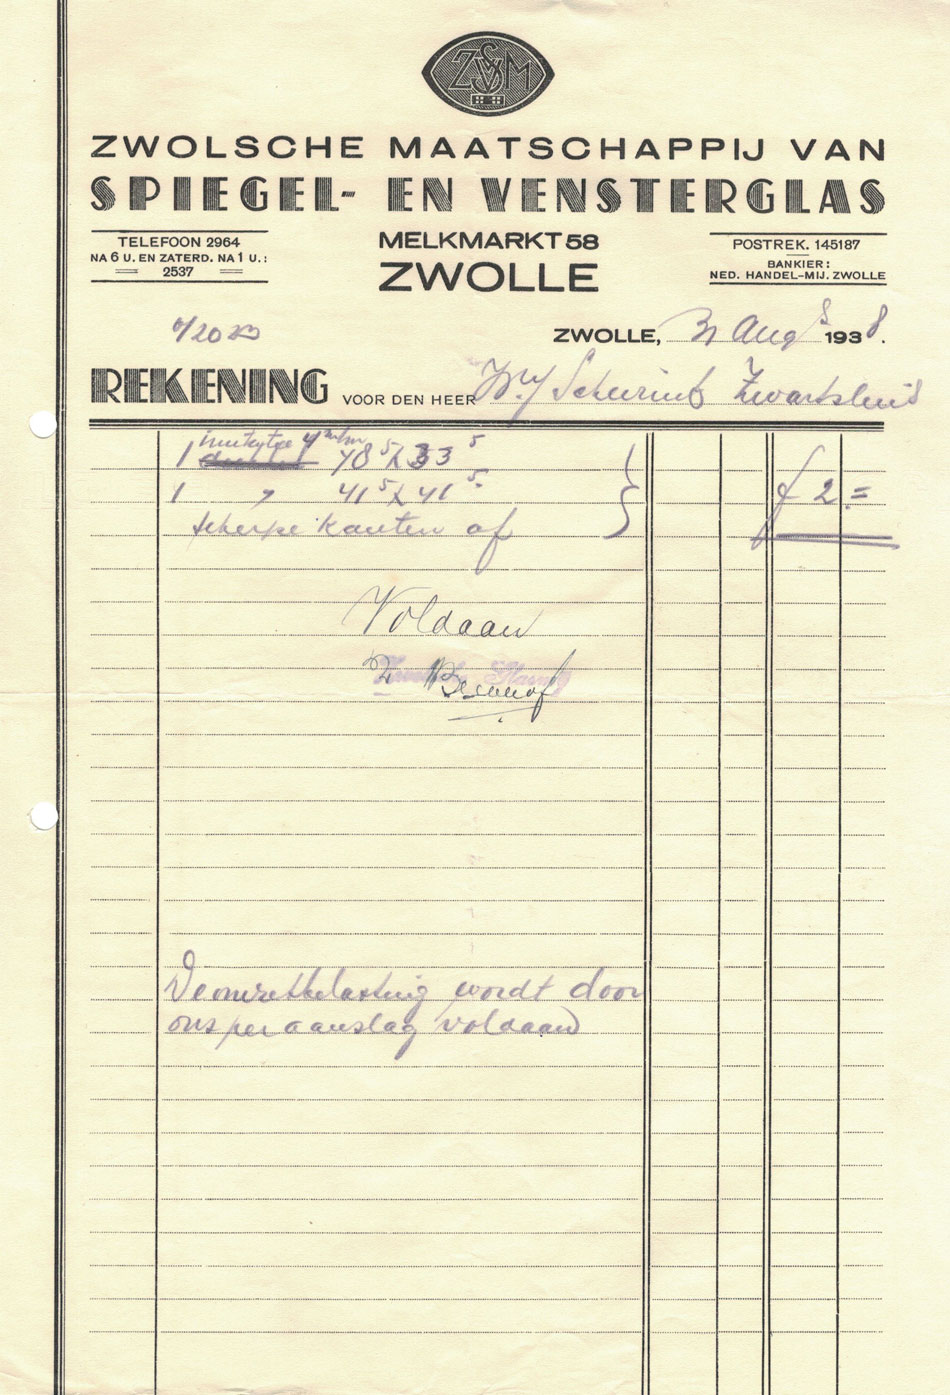 ZVSM
ZWOLSCHE MAATSCHAPPIJ VAN
SPIEGEL- EN VENSTERGLAS
TELEFOON 2964
NA 6 U. EN ZATERD. NA 1 U.:
2537
MELKMARKT 58
ZWOLLE
POSTREK. 145187
BANKIER:
NED. HANDEL-MIJ. ZWOLLE
ZWOLLE, 31 Augs 1938.
REKENING VOOR DEN HEER Scheurink Zwartsluis
1 48⁵ x 33⁵
1 " 41⁵ x 41⁵ f 2.=
scherpe kanten af
Voldaan
De omzetbelasting wordt door
ons per aanslag voldaan